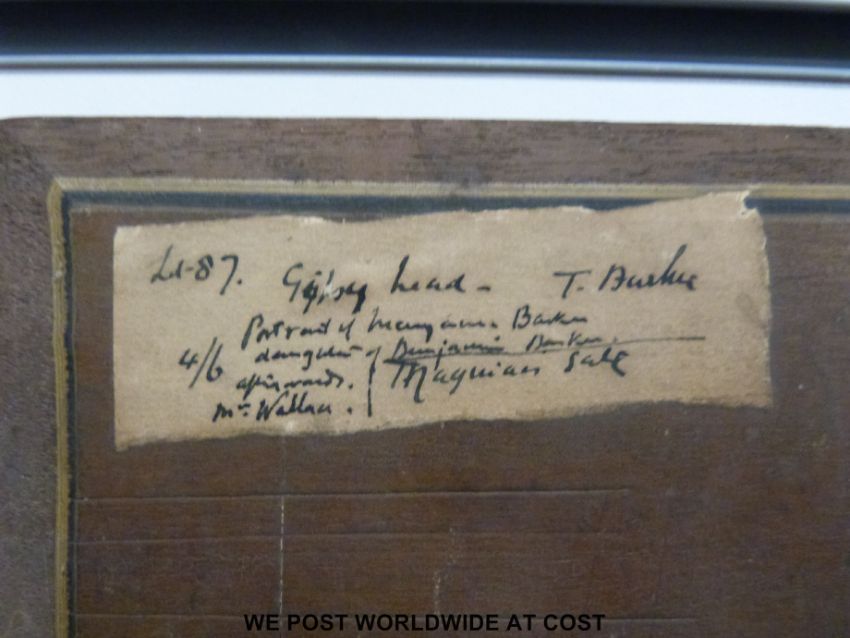 Lot-87. Gipsey head - T. Barker
Portrait of Maryanne Barker
4/6 daughter of Benjamin Barker.
afterwards. Magniacs Sale
Mrs Wallace.
WE POST WORLDWIDE AT COST